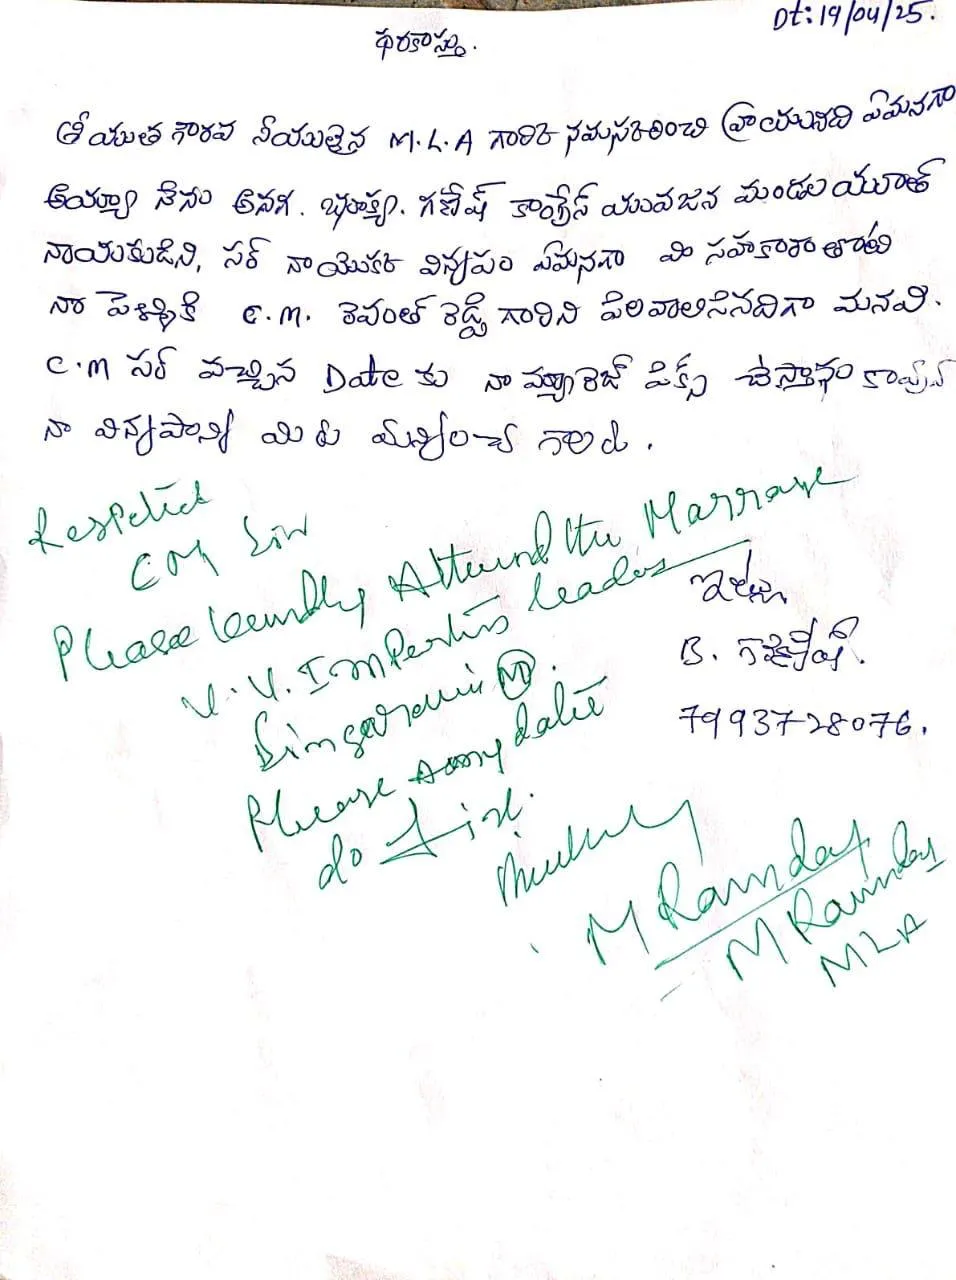 Dt: 19/04/25.
ధరకాస్తు.
శ్రీయుత గౌరవ నీయులైన M.L.A గారికి నమస్కరించి వ్రాయునది ఏమనగా
అయ్యా నేను అనగ. భూక్య. గణేష్ కాంగ్రేస్ యువజన మండల యూత్
నాయకుడిని, సర్ నా యొక్క విన్నపం ఏమనగా మీ సహకారం తోటి
నా పెళ్ళికి C.M. రేవంత్ రెడ్డి గారిని పిలవాలిసినదిగా మనవి.
C.M సర్ వచ్చిన Date కు నా మ్యారెజ్ పిక్స్ చేస్తాం కావున
నా విన్నపాన్ని మీరు మన్నించ గలరు.
Respected
CM Sir
Please kindly Attend the Marrage
V.V. Impertins leados
Singareni (M).
Please
date
do fix.
ఇట్లు
B. గణేష్.
7993728076.
M Ramdas
M Ramdas
MLA